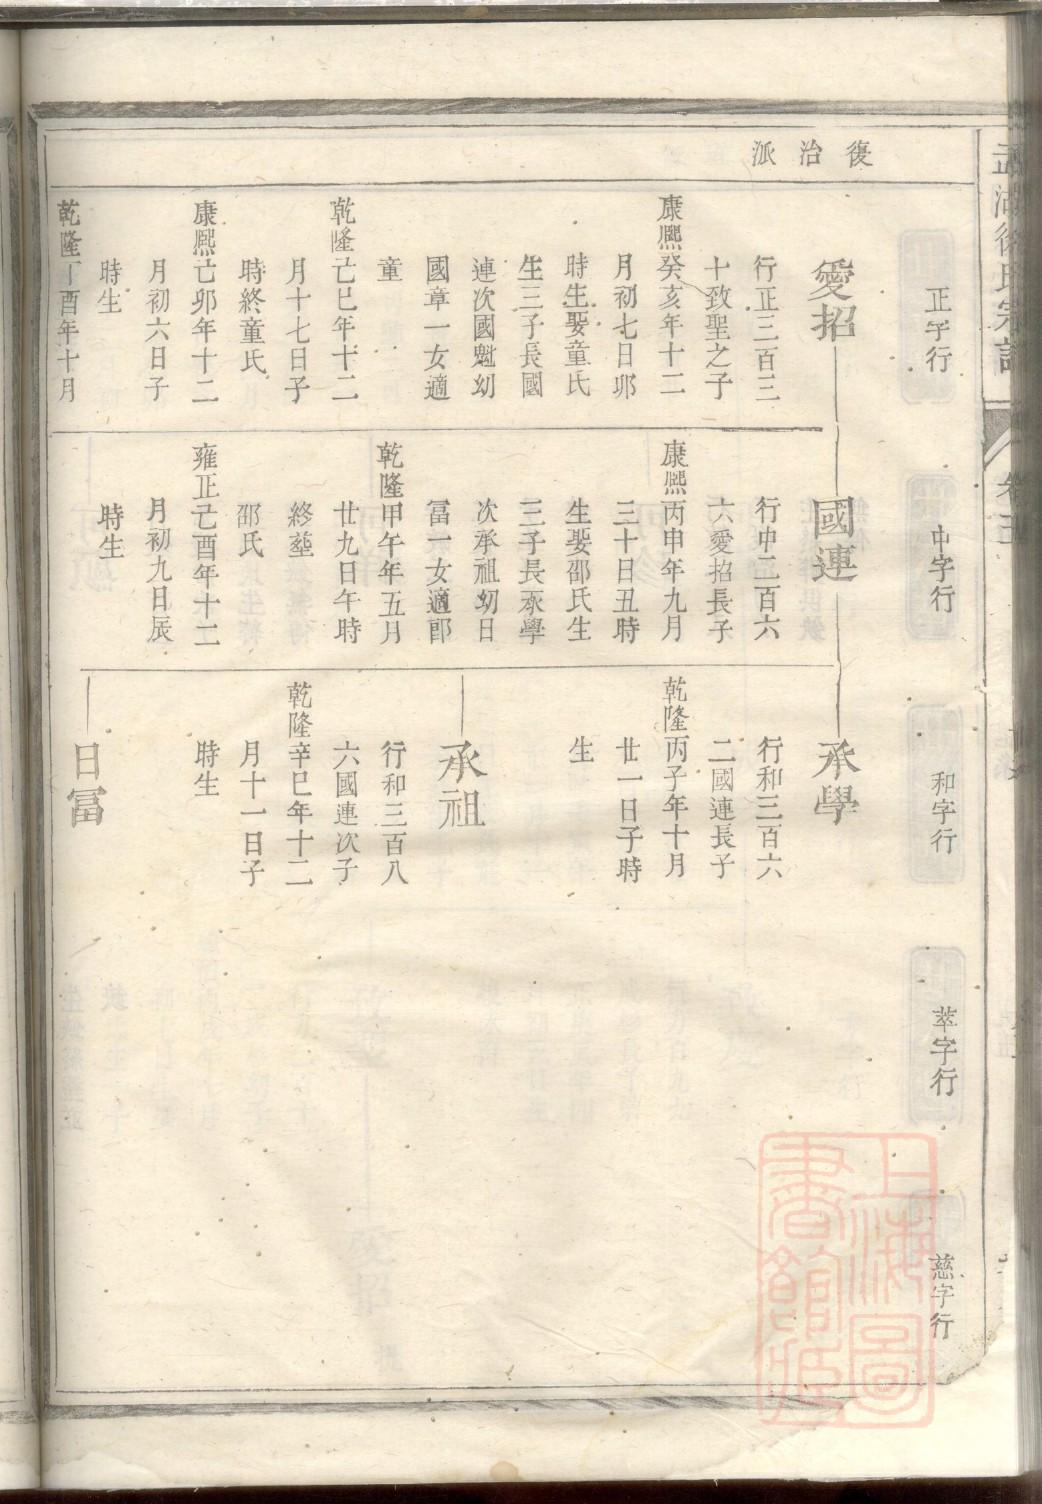 復治派
正字行
中字行
和字行
萃字行
慈字行
愛招
行正三百三
十致聖之子
康熙癸亥年十二
月初七日卯
時生娶童氏
生三子長國
連次國魁幼
國章一女適
童
乾隆己巳年十二
月十七日子
時終童氏
康熙己卯年十二
月初六日子
時生
乾隆丁酉年十月
國連
行中二百六
六愛招長子
康熙丙申年九月
三十日丑時
生娶邵氏生
三子長承學
次承祖幼日
冨一女適郎
乾隆甲午年五月
廿九日午時
終塟
邵氏
雍正己酉年十二
月初九日辰
時生
承學
行和三百六
二國連長子
乾隆丙子年十月
廿一日子時
生
承祖
行和三百八
六國連次子
乾隆辛巳年十二
月十一日子
時生
日冨
上海圖
書館藏